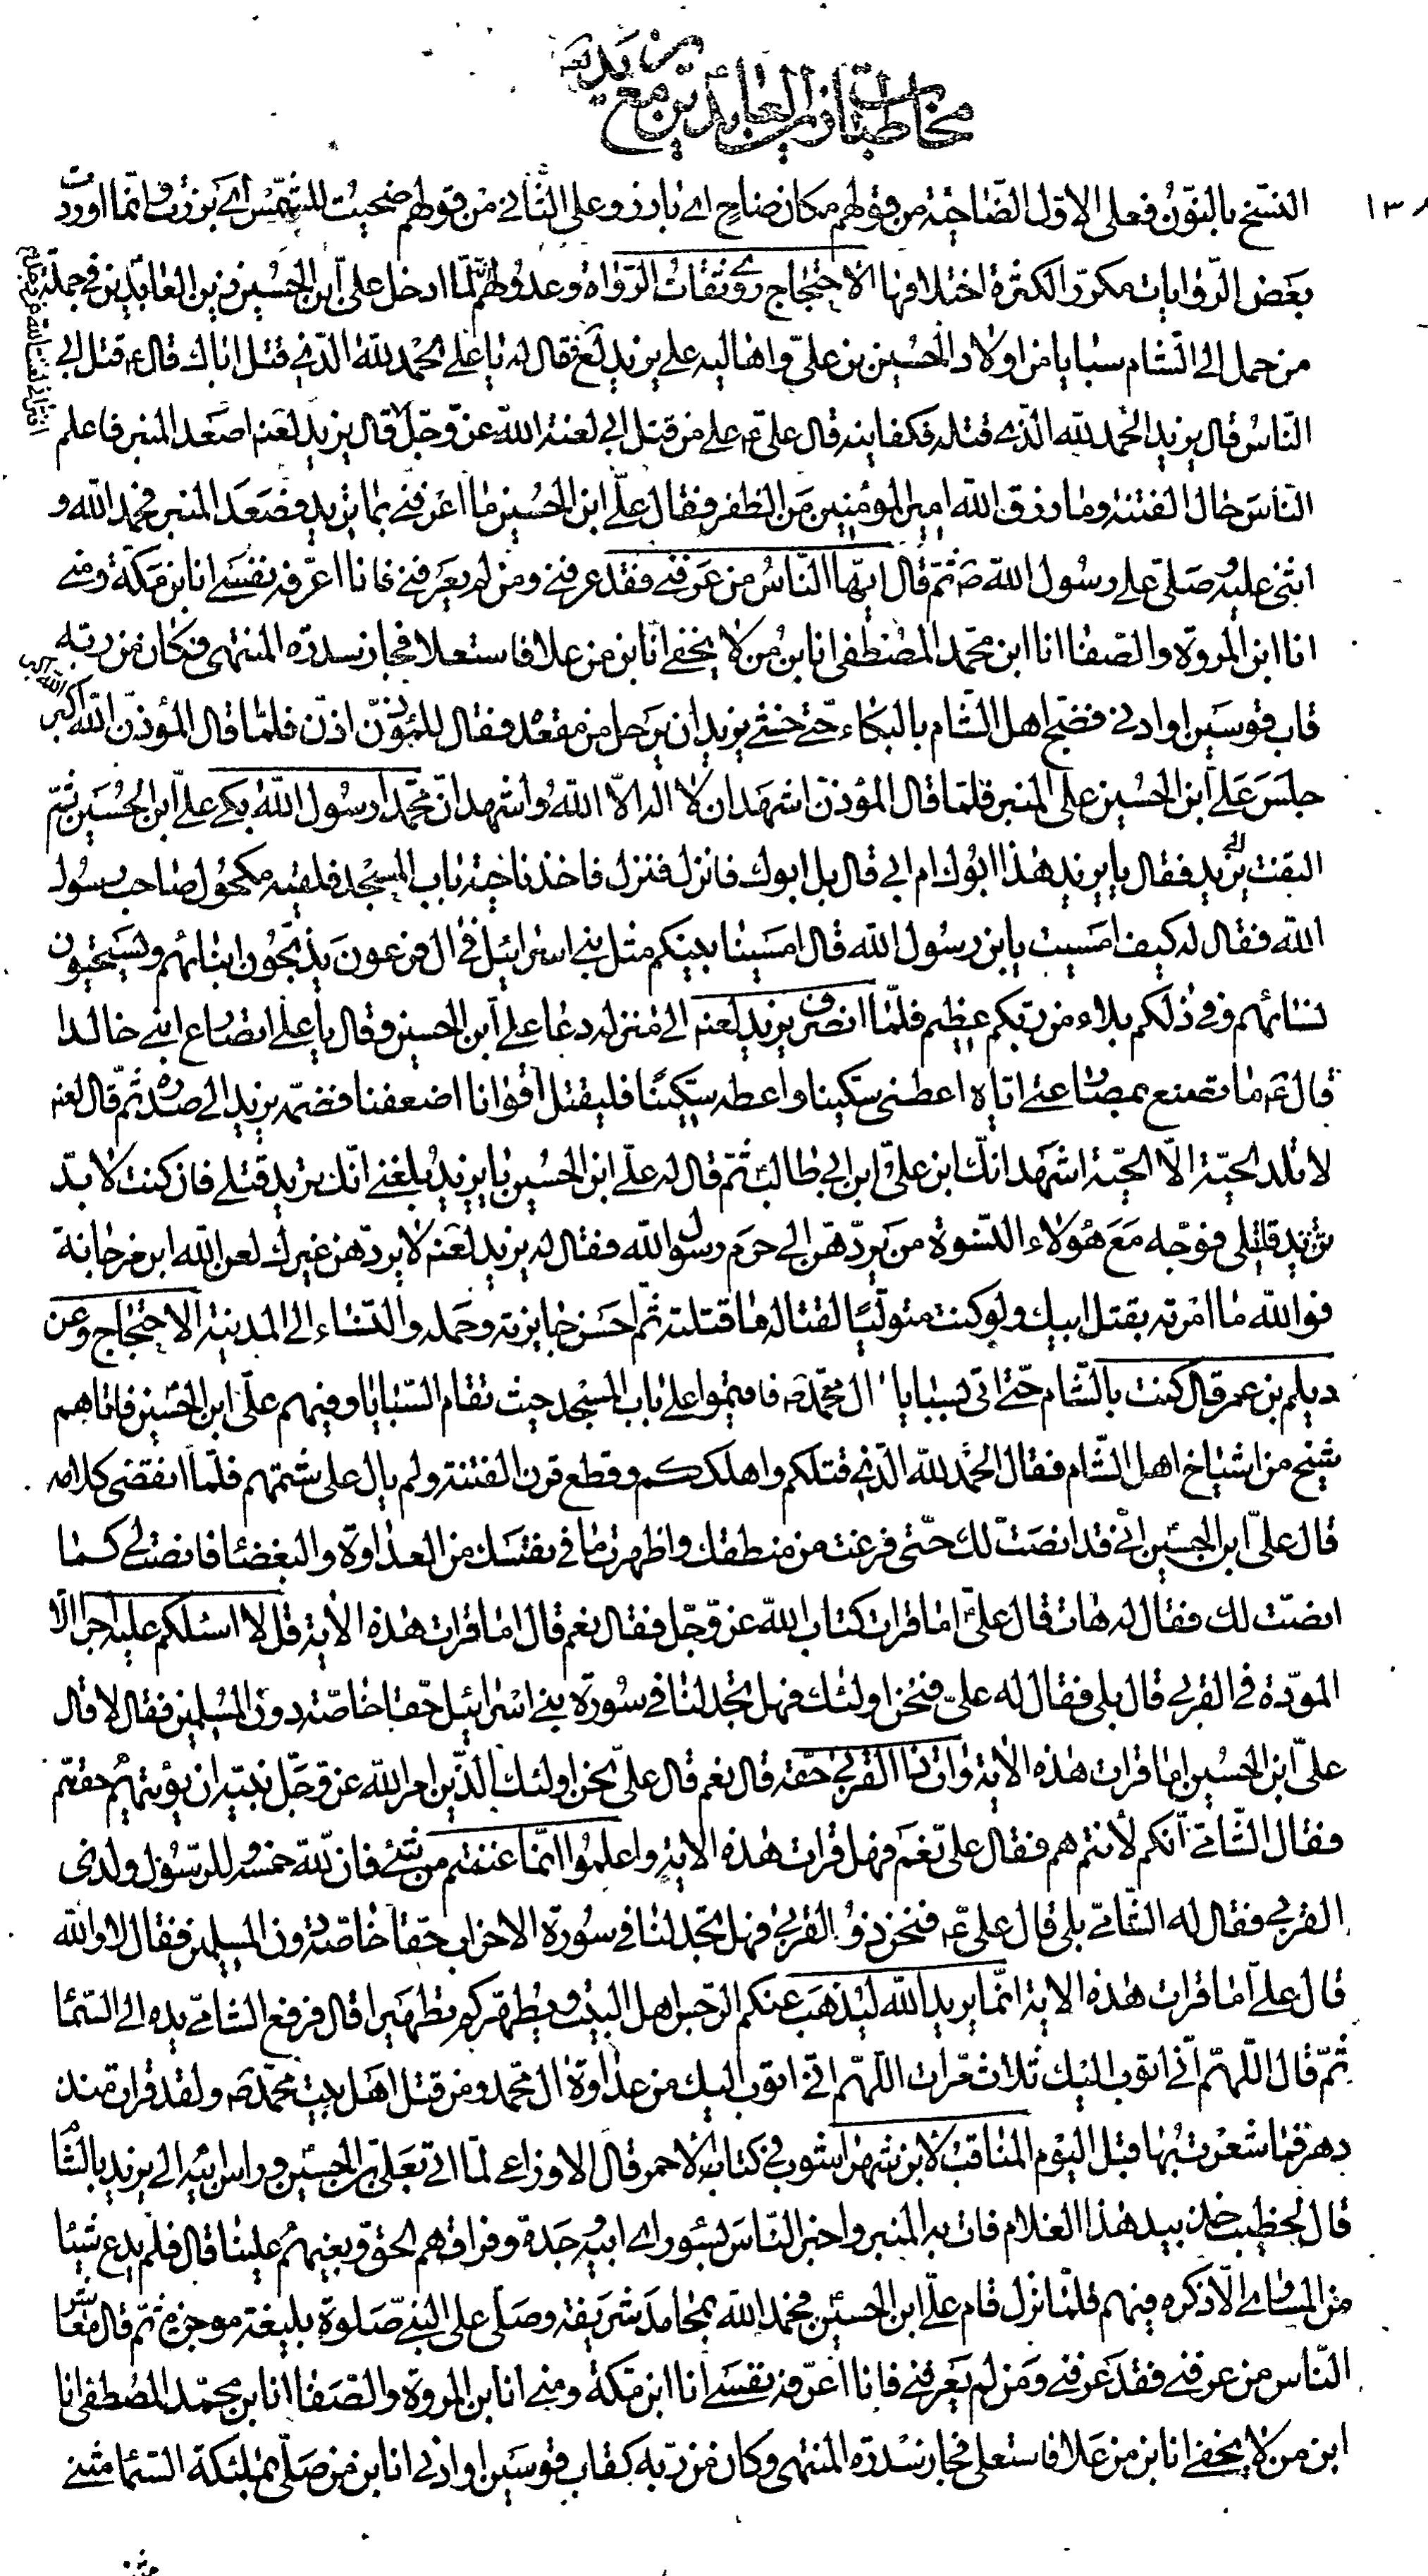 مخاطبات زين العابدين مع يزيد لعنه
١٣٨
النسخ بالنون فعلى الاول الضاحية من قولهم مكان ضاح اى بارز و على الثانى من قولهم ضحيت للشمس اى برزت و انما اوردت
بعض الروايات مكررا لكثرة اختلافها الاحتجاج روى ثقات الرواة و عدولهم لما ادخل على ابن الحسين زين العابدين فى جملة
من حمل الى الشام سبايا من اولاد الحسين بن على و اهاليه على يزيد لع قال له يا على الحمد لله الذى قتل اباك قال ع قتل ابى
الناس قال يزيد الحمد لله الذى قتله فكفانيه قال على ع على من قتل ابى لعنة الله عز و جل قال يزيد لعنه اصعد المنبر فاعلم
الناس حال الفتنة و ما رزق الله امير المؤمنين من الظفر فقال على ابن الحسين ما اعرفنى بما تريد فصعد المنبر فحمد الله و
اثنى عليه و صلى على رسول الله ص ثم قال ايها الناس من عرفنى فقد عرفنى و من لم يعرفنى فانا اعرفه نفسى انا ابن مكة و منى
انا ابن المروة و الصفا انا ابن محمد المصطفى انا بن من لا يخفى انا بن من علا فاستعلا فجاز سدرة المنتهى فكان من ربه
قاب قوسين او ادنى فضج اهل الشام بالبكاء حتى خشى يزيد ان يرحل من مقعده فقال للمؤذن اذن فلما قال المؤذن الله اكبر الله اكبر
جلس على ابن الحسين على المنبر فلما قال المؤذن اشهد ان لا اله الا الله و اشهد ان محمدا رسول الله بكى على ابن الحسين ثم
التفت الى يزيد فقال يا يزيد هذا ابوك ام ابى قال بل ابوك فانزل فنزل فاخذ ناحية باب المسجد فلقيه مكحول صاحب رسول
الله فقال له كيف امسيت يا بن رسول الله قال امسينا بينكم مثل بنى اسرائيل فى ال فرعون يذبحون ابنائهم و يستحيون
نسائهم و فى ذلكم بلاء من ربكم عظيم فلما انصرف يزيد لعنه الى منزله دعا على ابن الحسين و قال يا على اتصارع ابنى خالدا
قال ع ما تصنع بمصارعتى اياه اعطنى سكينا و اعطه سكينا فليقتل اقوانا اضعفنا فضمه يزيد الى صدره ثم قال لعنه
لا تلد الحية الا الحية اشهد انك ابن على ابن ابى طالب ثم قال له على ابن الحسين يا يزيد بلغنى انك تريد قتلى فان كنت لا بد
تريد قتلى فوجه مع هؤلاء النسوة من يردهن الى حرم رسول الله فقال له يزيد لعنه لا يردهن غيرك لعن الله ابن مرجانة
فو الله ما امرته بقتل ابيك و لو كنت متوليا لقتاله ما قتلته ثم احسن جايزته و حمله و النساء الى المدينة الاحتجاج و عن
ديلم بن عمر قال كنت بالشام حتى اتى بسبايا ال محمد ص فاقيموا على باب المسجد حيث تقام السبايا و فيهم على ابن الحسين فاتاهم
شيخ من اشياخ اهل الشام فقال الحمد لله الذى قتلكم و اهلككم و قطع قرن الفتنة و لم يال على شتمهم فلما انقضى كلامه
قال على ابن الحسين انى قد انصت لك حتى فرغت من منطقك و اظهرت ما فى نفسك من العداوة و البغضا فانصت لى كما
انصت لك فقال له هات قال على ع اما قرات كتاب الله عز و جل فقال نعم قال اما قرات هذه الاية قل لا اسئلكم عليه اجرا الا
المودة فى القربى قال بلى فقال له على فنحن اولئك فهل تجد لنا فى سورة بنى اسرائيل حقا خاصة دون المسلمين فقال لا قال
على ابن الحسين اما قرات هذه الاية و ات ذا القربى حقه قال نعم قال على نحن اولئك الذين امر الله عز و جل نبيه ان يؤتيهم حقهم
فقال الشامى انكم لأنتم هم فقال على نعم فهل قرات هذه الاية و اعلموا انما غنمتم من شئ فان لله خمسه و للرسول و لذى
القربى فقال له الشامى بلى قال على ع فنحن ذو القربى فهل تجد لنا فى سورة الاحزاب حقا خاصة دون المسلمين فقال لا و الله
قال على اما قرات هذه الاية انما يريد الله ليذهب عنكم الرجس اهل البيت و يطهركم تطهيرا قال فرفع الشامى يده الى السما
ثم قال اللهم انى اتوب اليك ثلاث مرات اللهم انى اتوب اليك من عداوة ال محمد و من قتل اهل بيت محمد ص و لقد قرات منذ
دهر فما شعرت بها قبل اليوم المناقب لابن شهراشوب فى كتاب الاحمر قال الاوزاعى لما اتى بعلى بن الحسين و راس ابيه الى يزيد بالشام
قال لخطيب خذ بيد هذا الغلام فات به المنبر و اخبر الناس بسوء راى ابيه و جده و فراقهم الحق و بغيهم علينا قال فلم يدع شيئا
من المساوى الا ذكره فيهم فلما نزل قام على ابن الحسين فحمد الله بمحامد شريفة و صلى على النبى صلوة بليغة موجزة ثم قال معاشر
الناس من عرفنى فقد عرفنى و من لم يعرفنى فانا اعرفه نفسى انا ابن مكة و منى انا بن المروة و الصفا انا بن محمد المصطفى انا
ابن من لا يخفى انا بن من علا فاستعلى فجاز سدرة المنتهى و كان من ربه كقاب قوسين او ادنى انا بن من صلى بملئكة السما مثنى
مثنى